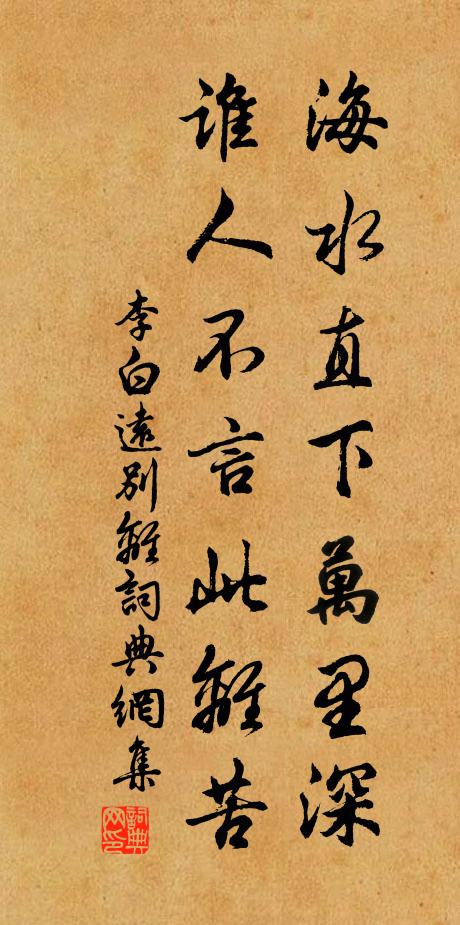 海水直下萬里深
誰人不言此離苦
李白遠別離詞典網集
詞典網印